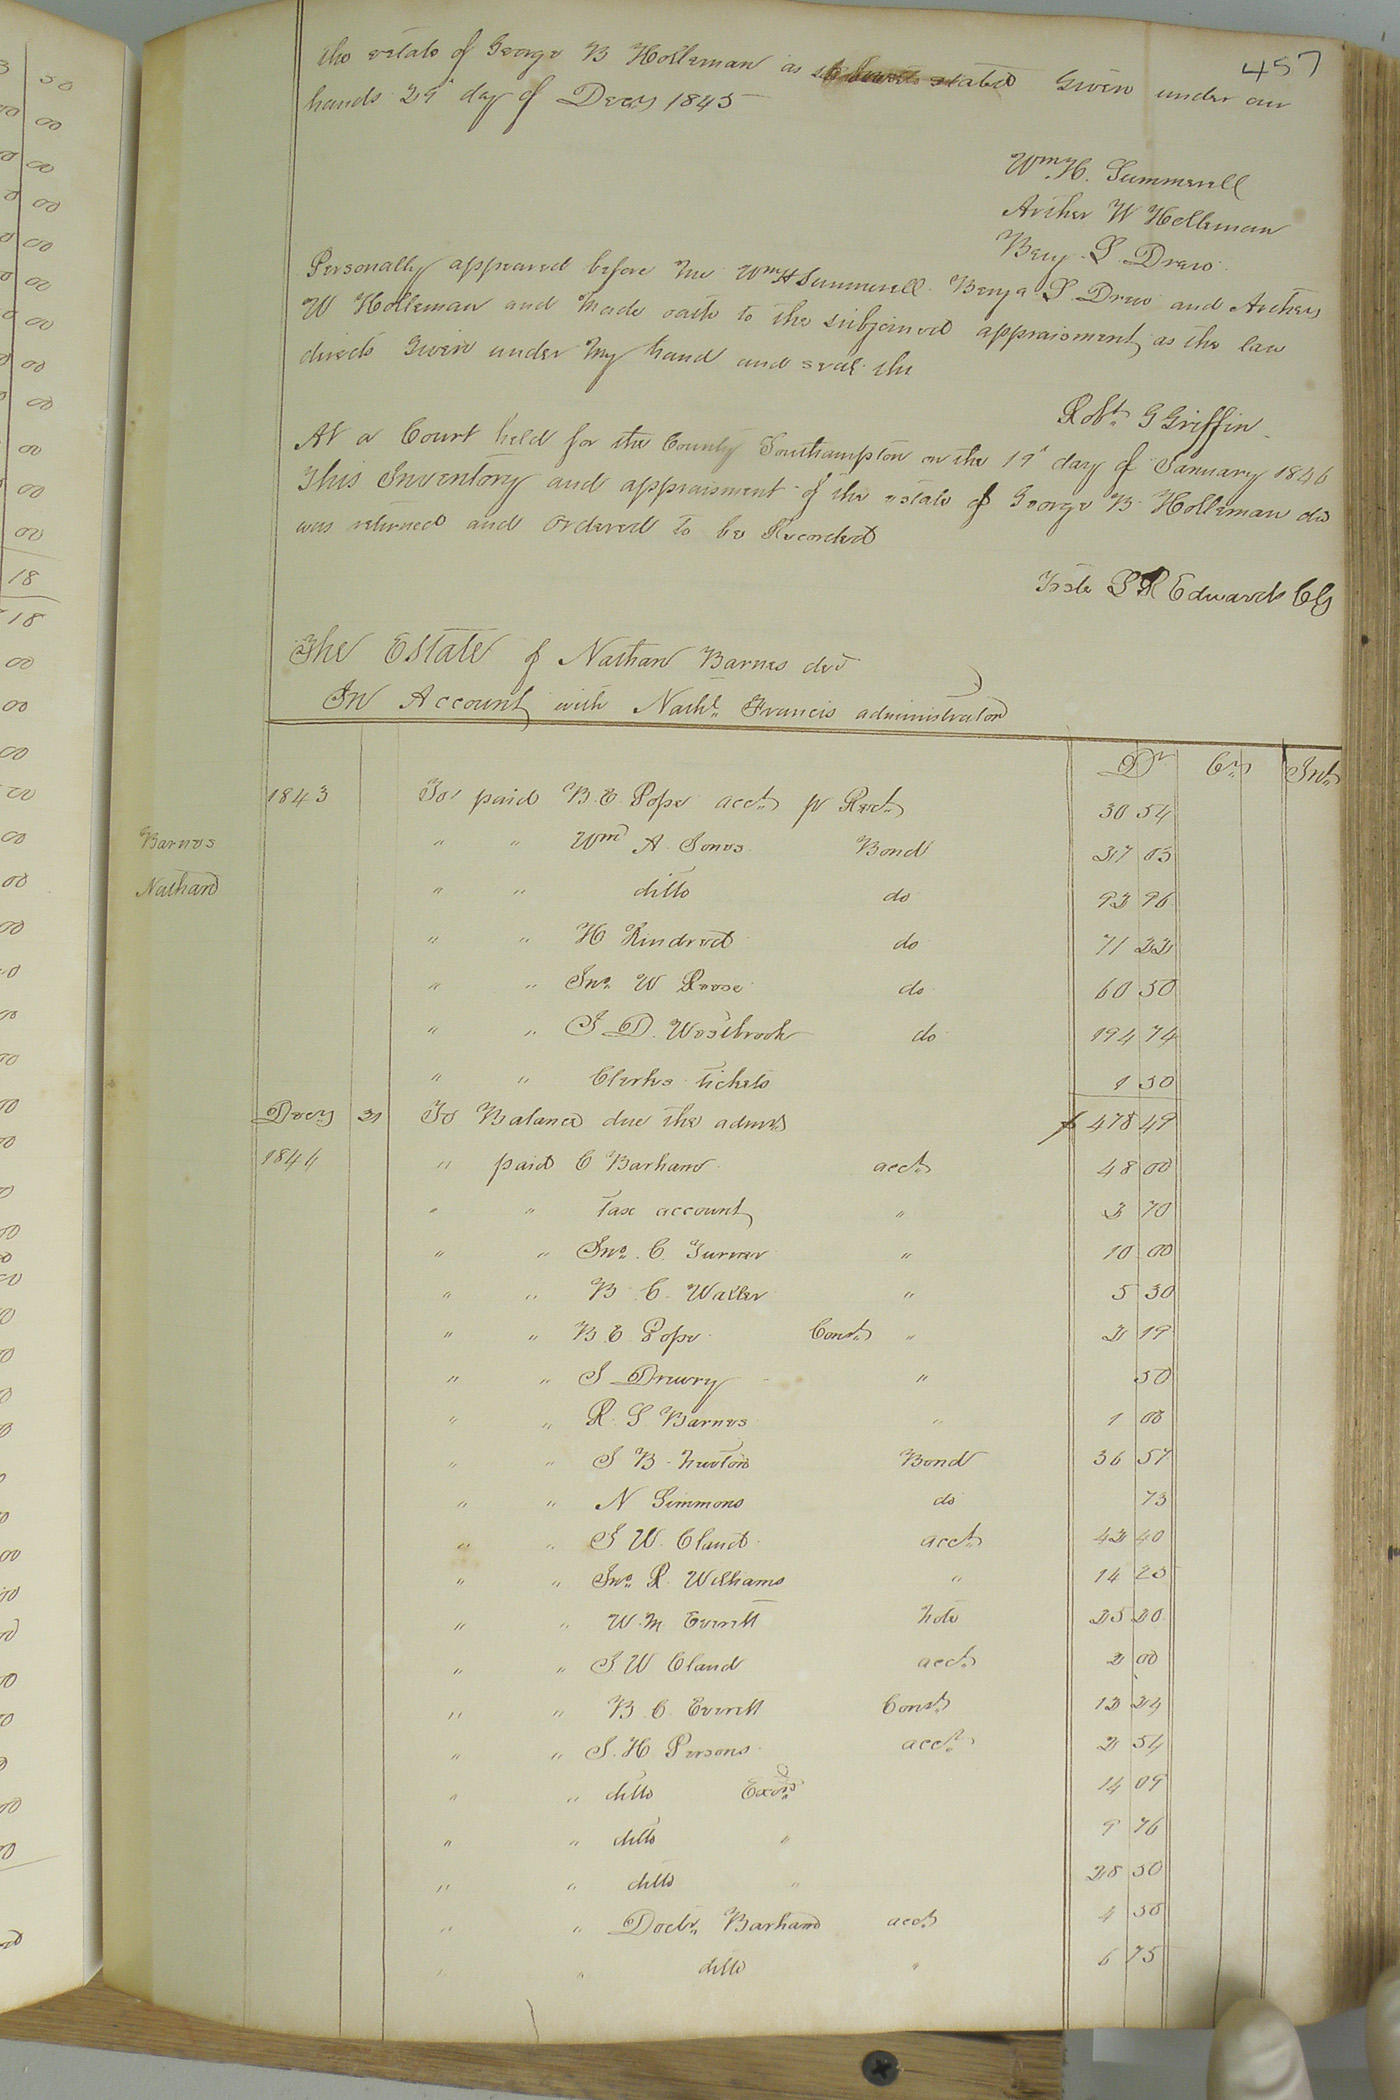 457
the estate of George B Holleman as stated Given under our
hands 29 day of Decr 1845
Wm H. Summerell
Archer W Holleman
Benj. S. Drew
Personally appeared before me Wm H Summerell Benja S. Drew and Archer
W Holleman and made oath to the subjoined appraisment as the law
directs Given under my hand and seal the
Robt G Griffin
At a Court held for the County Southampton on the 19 day of January 1846
This Inventory and appraisment of the estate of George B Holleman dcd
was returned and ordered to be Recorded
Teste L R Edwards Clk
The Estate of Nathan Barnes decd
In Account with Nathl Francis administrator
Dr Cr Int
1843 To paid B. E. Pope acct pr Rect 30 54
Barnes " " Wm A Jones Bond 27 03
Nathan " " ditto do 92 96
" " H Kindred do 71 22
" " Jno W Reese do 60 50
" " J D. Westbrook do 194 74
" " Clerks tickets 1 50
Decr 31 To Balance due the admr $ 478 49
1844 " paid C Barham acct 48 00
" " Tax account " 2 70
" " Jno C. Turner " 10 00
" " B. C. Waller " 5 30
" " B. E. Pope Const " 2 19
" " J Drewry " 50
" " R. S Barnes " 1 00
" " J B Newton Bond 36 57
" " N Simmons do 73
" " J W. Claud acct 42 40
" " Jno R. Williams " 14 25
" " W. M Everett note 25 20
" " J W Claud acct 2 00
" " B. C. Everett Const 12 24
" " J. H Persons acct 2 54
" " ditto Exor 14 09
" " ditto " 9 76
" " ditto " 28 50
" " Doctr Barham acct 4 50
" " ditto " 6 75